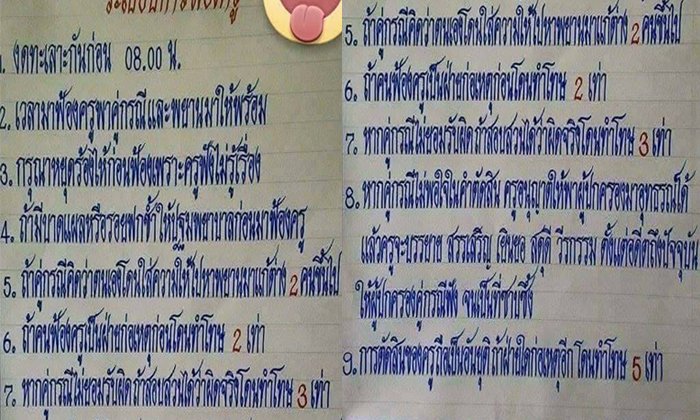 ระเบียบการฟ้องครู
1. งดทะเลาะกันก่อน 08.00 น.
2. เวลามาฟ้องครูพาคู่กรณีและพยานมาให้พร้อม
3. กรุณาหยุดร้องไห้ก่อนฟ้องเพราะครูฟังไม่รู้เรื่อง
4. ถ้ามีบาดแผลหรือรอยฟกช้ำให้ปฐมพยาบาลก่อนมาฟ้องครู
5. ถ้าคู่กรณีคิดว่าตนเองโดนใส่ความให้ไปหาพยานมาแก้ต่าง 2 คนขึ้นไป
6. ถ้าคนฟ้องครูเป็นฝ่ายก่อเหตุก่อนโดนทำโทษ 2 เท่า
7. หากคู่กรณีไม่ยอมรับผิด ถ้าสอบสวนได้ว่าผิดจริงโดนทำโทษ 3 เท่า
5. ถ้าคู่กรณีคิดว่าตนเองโดนใส่ความให้ไปหาพยานมาแก้ต่าง 2 คนขึ้นไป
6. ถ้าคนฟ้องครูเป็นฝ่ายก่อเหตุก่อนโดนทำโทษ 2 เท่า
7. หากคู่กรณีไม่ยอมรับผิด ถ้าสอบสวนได้ว่าผิดจริงโดนทำโทษ 3 เท่า
8. หากคู่กรณีไม่พอใจในคำตัดสิน ครูอนุญาตให้พาผู้ปกครองมาอุทธรณ์ได้
แล้วครูจะบรรยาย สรรเสริญ เยินยอ สดุดี วีรกรรม ตั้งแต่อดีตถึงปัจจุบัน
ให้ผู้ปกครองคู่กรณีฟัง จนเป็นที่ซาบซึ้ง
9. การตัดสินของครูถือเป็นอันยุติ ถ้าฝ่ายใดก่อเหตุอีก โดนทำโทษ 5 เท่า